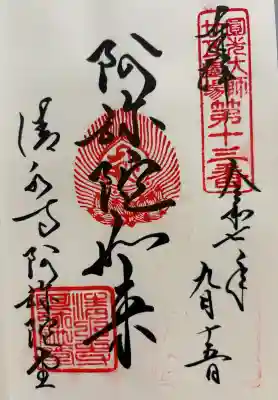 奉拝
圓光大師
二十五霊場第十三番
令和七年九月十五日
阿弥陀如来
清水寺阿弥陀堂